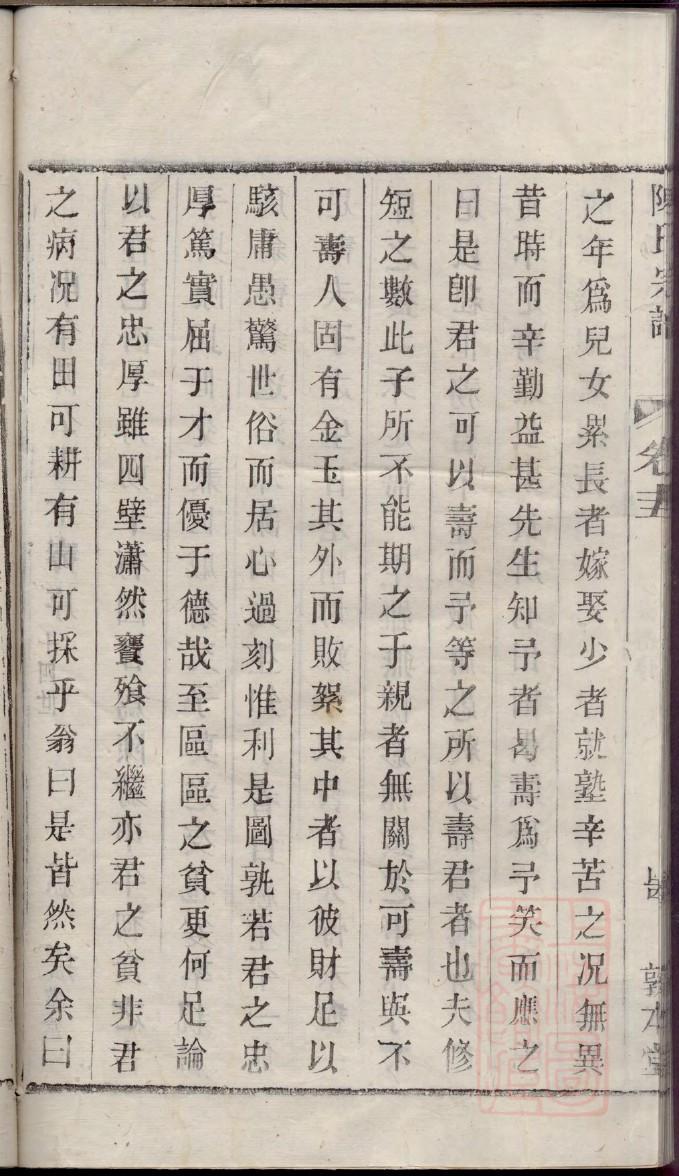 陳氏宗譜
卷五
敦本堂
之年爲兒女累長者嫁娶少者就塾辛苦之况無異
昔時而辛勤益甚先生知予者曷壽爲予笑而應之
曰是卽君之可以壽而予等之所以壽君者也夫修
短之數此予所不能期之于親者無關於可壽與不
可壽人固有金玉其外而敗絮其中者以彼財足以
駭庸愚驚世俗而居心過刻惟利是圖孰若君之忠
厚篤實屈于才而優于德哉至區區之貧更何足論
以君之忠厚雖四壁瀟然饔飧不繼亦君之貧非君
之病况有田可耕有山可採乎翁曰是皆然矣余曰